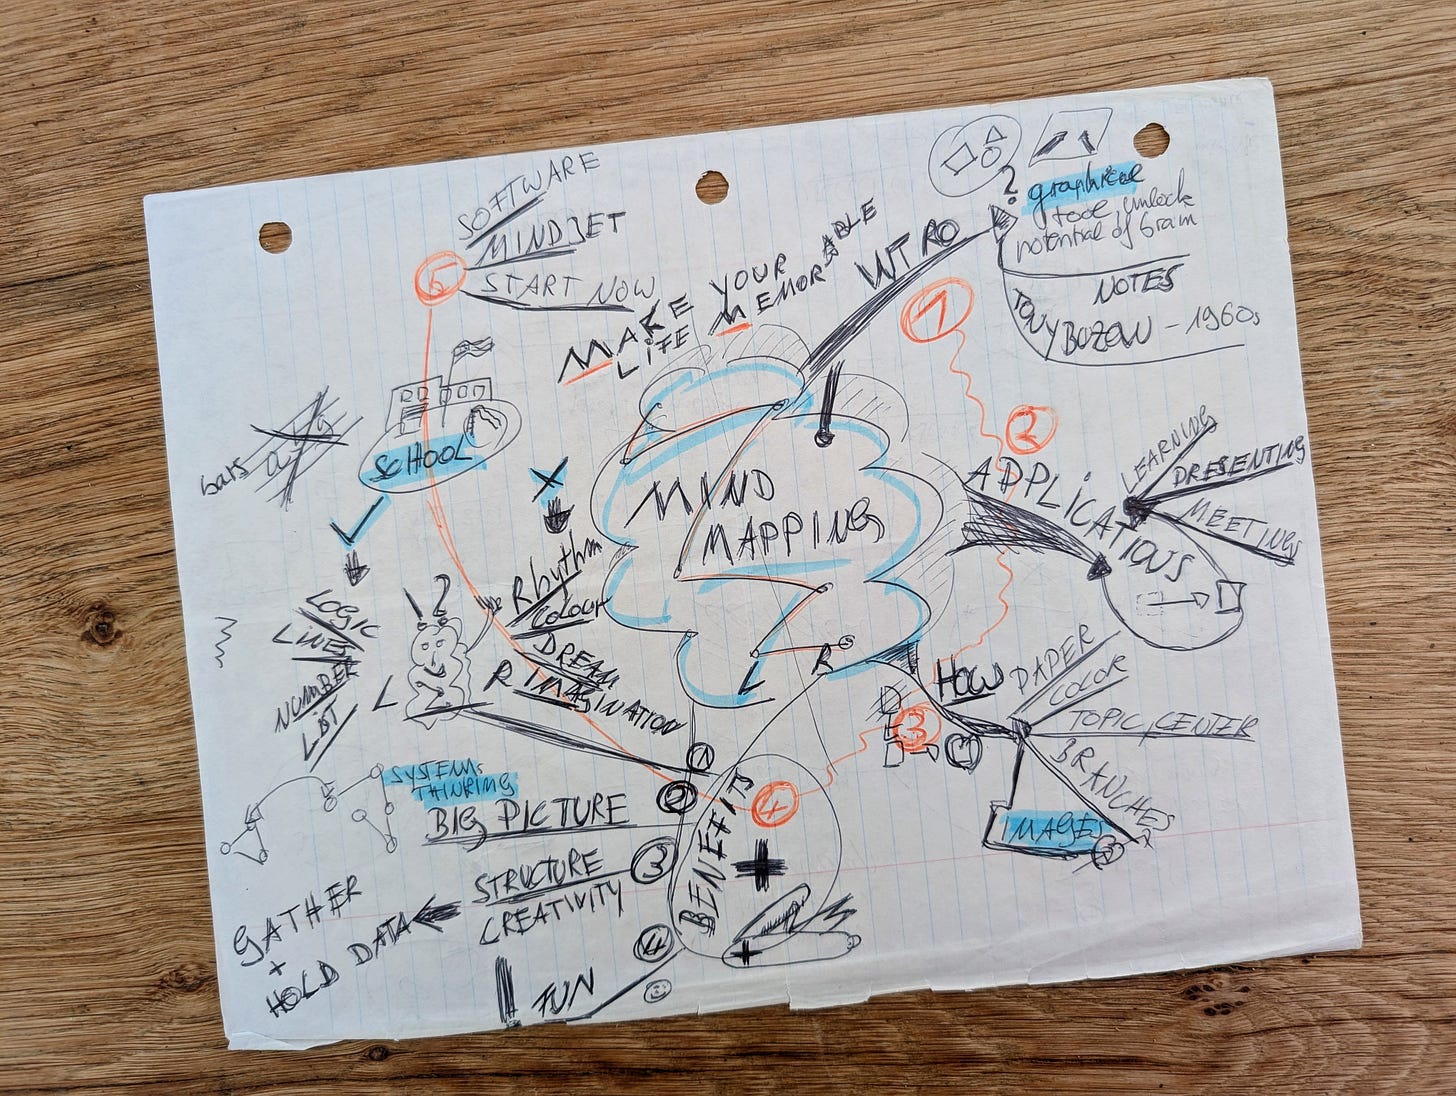 MIND
MAPPING
MAKE YOUR
LIFE MEMORABLE
INTRO
1
?
graphical
tool unlock
potential of brain
NOTES
TONY BUZAN - 1960s
2
APPLICATIONS
LEARNING
PRESENTING
MEETINGS
3
HOW
PAPER
COLOR
TOPIC, CENTER
BRANCHES
IMAGES
4
BENEFITS
+
+
1
! ?
L
R
SCHOOL
bars
LOGIC
LINES
NUMBER
LIST
X
Rhythm
COLOUR
DREAM
IMAGINATION
2
SYSTEMS
THINKING
BIG PICTURE
3
STRUCTURE
CREATIVITY
GATHER
+
HOLD DATA
4
FUN
5
SOFTWARE
MINDSET
START NOW